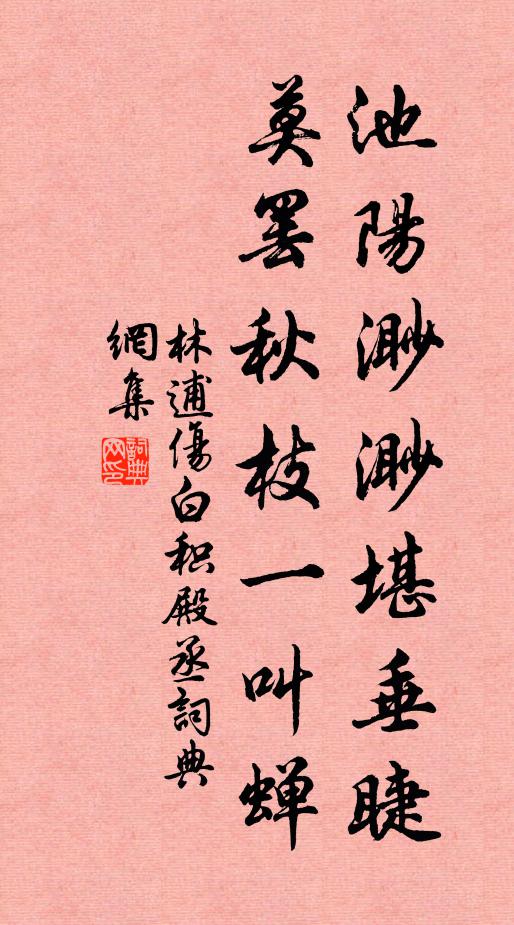 池陽渺渺堪垂睫
莫罢秋枝一叫蝉
林逋傷白积殿丞詞典
網集
詞典
网印